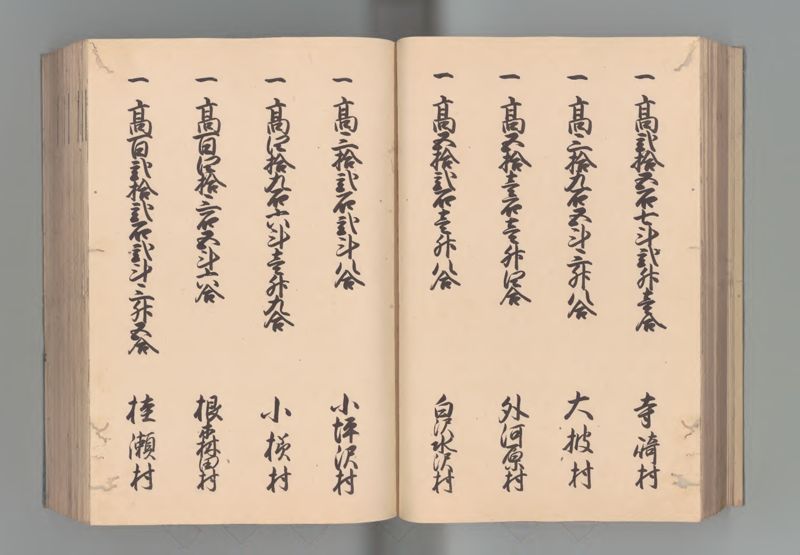 一 高弐拾五石七斗弐升壱合 寺崎村
一 高三拾九石五斗三升八合 大披村
一 高五拾壱石壱升四合 外河原村
一 高五拾弐石壱升八合 白沢水沢村
一 高三拾弐石弐斗八合 小坪沢村
一 高四拾九石六斗壱升九合 小横村
一 高百四拾三石五斗六合 根森田村
一 高百弐拾弐石弐斗三升五合 桂瀬村